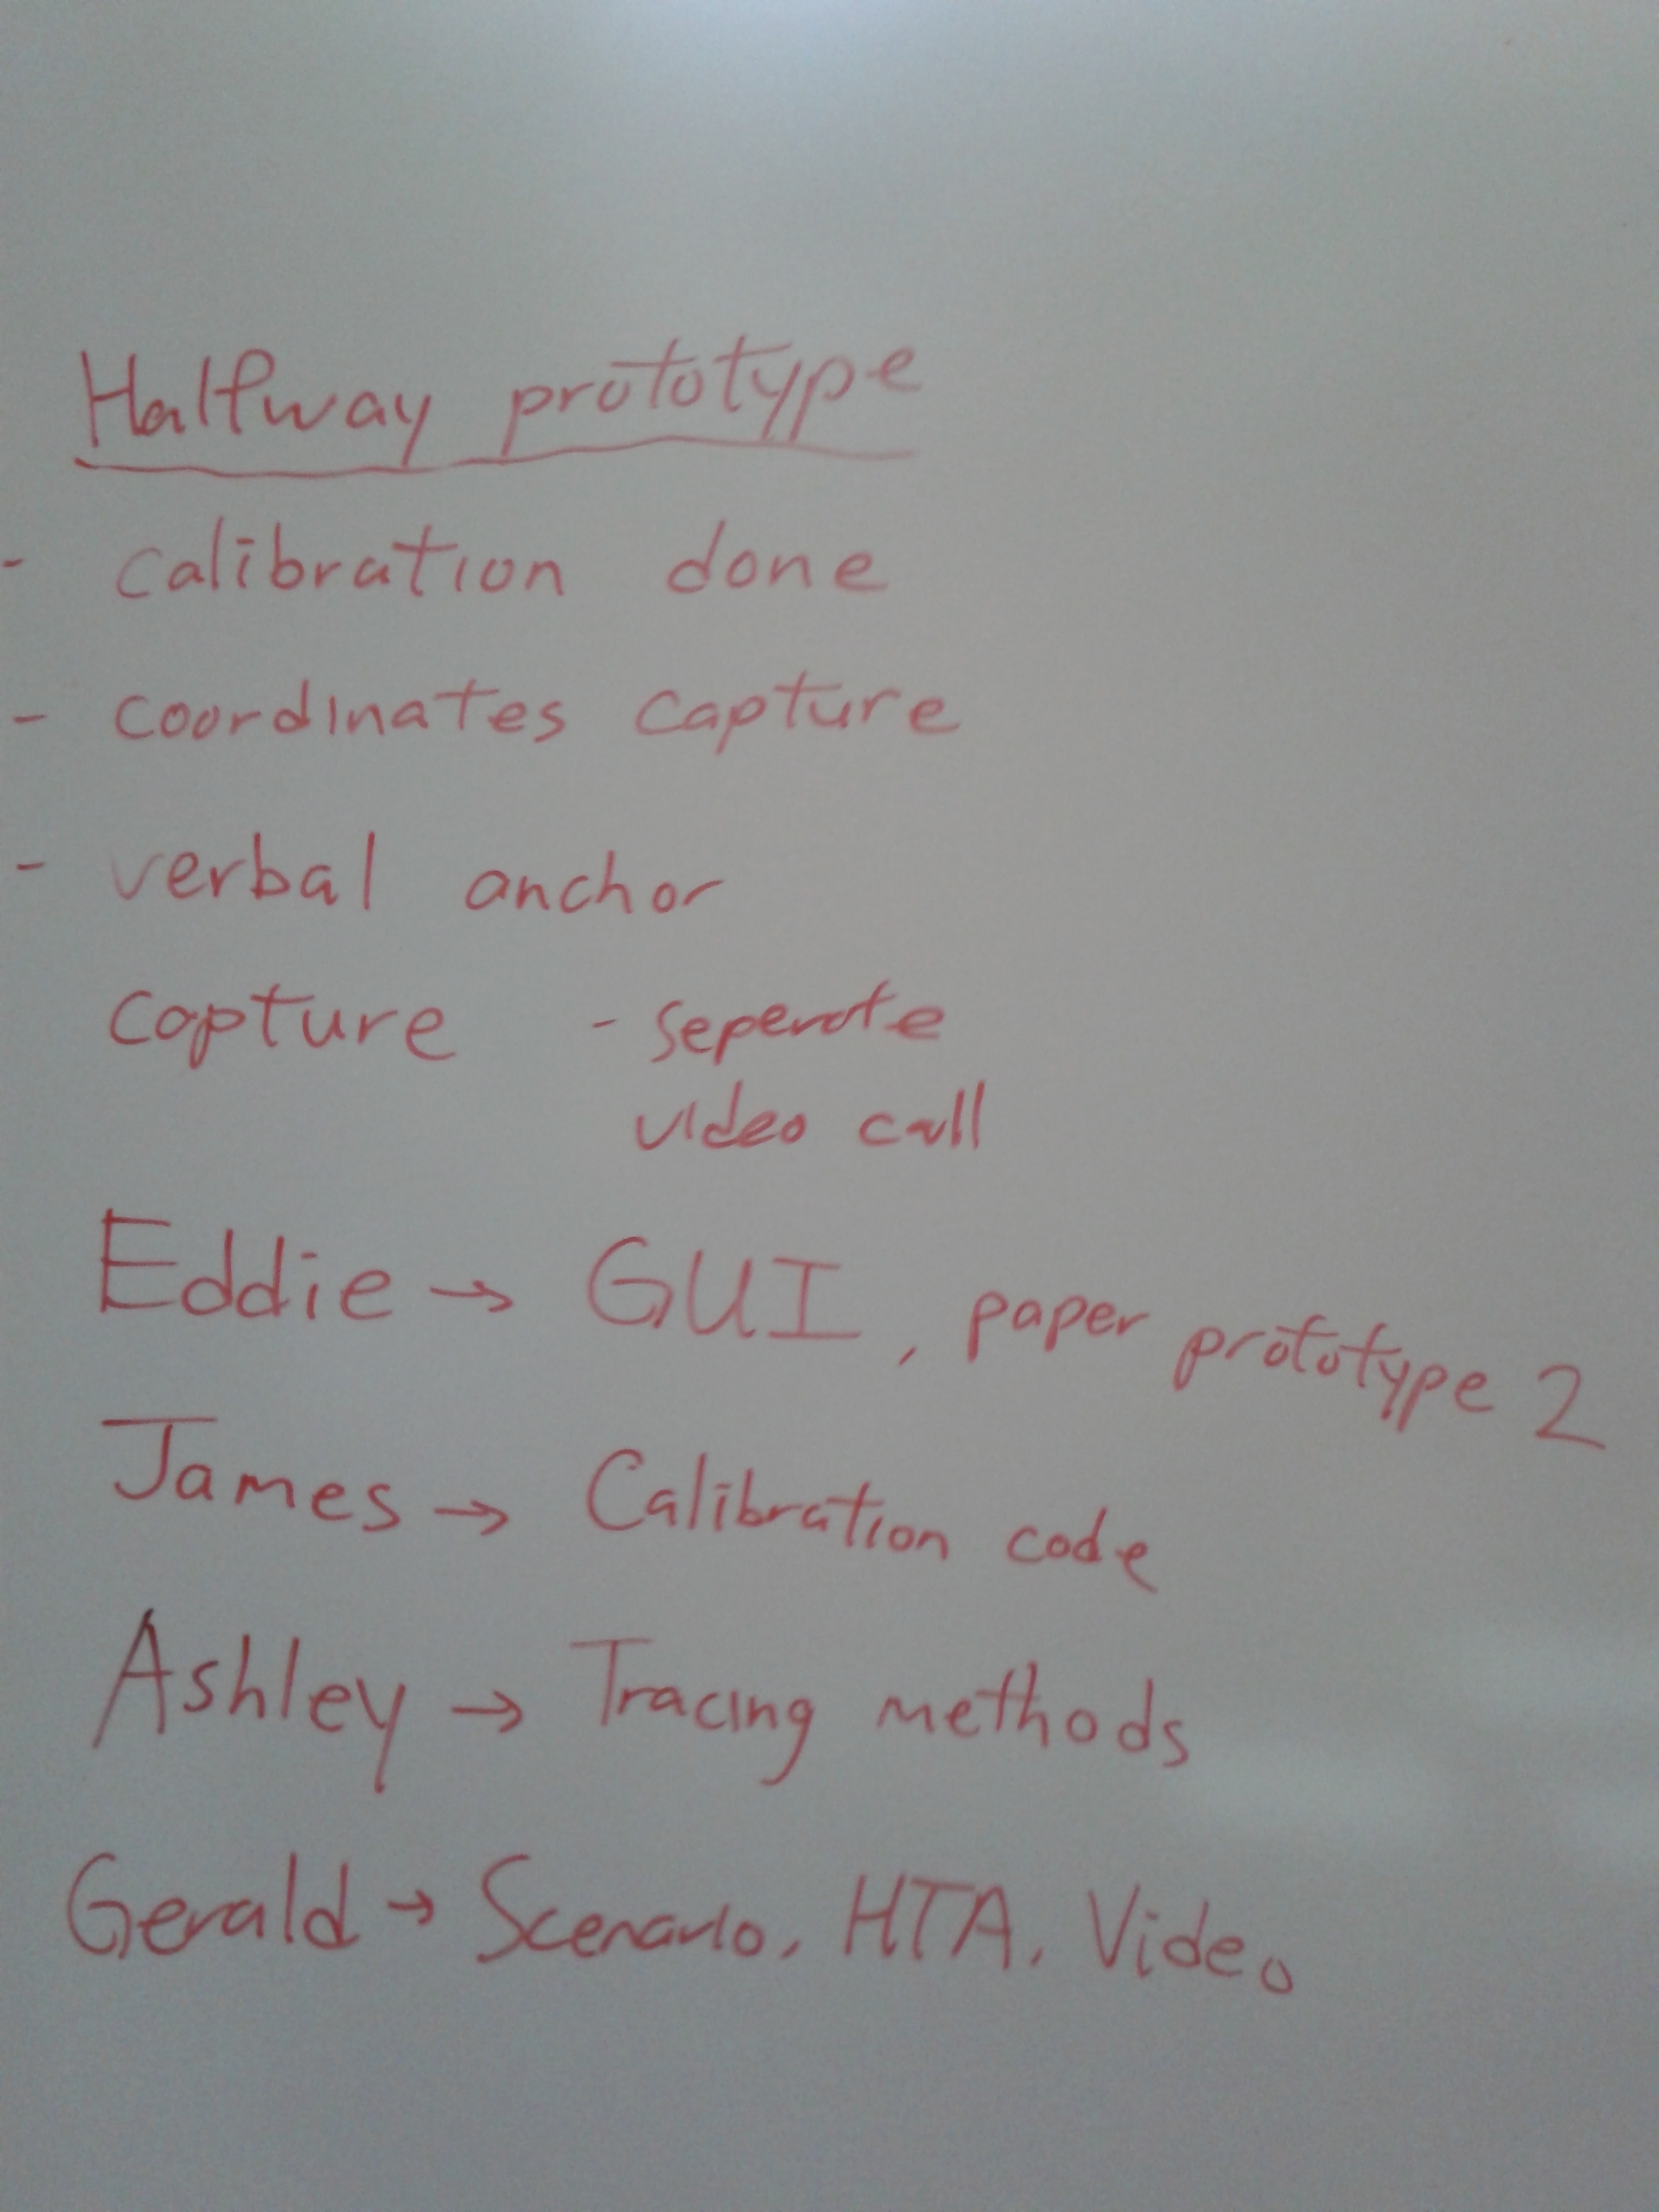 Halfway prototype
- calibration done
- coordinates capture
- verbal anchor
capture - seperate
video call
Eddie → GUI, paper prototype 2
James → Calibration code
Ashley → Tracing methods
Gerald → Scenario, HTA, Video